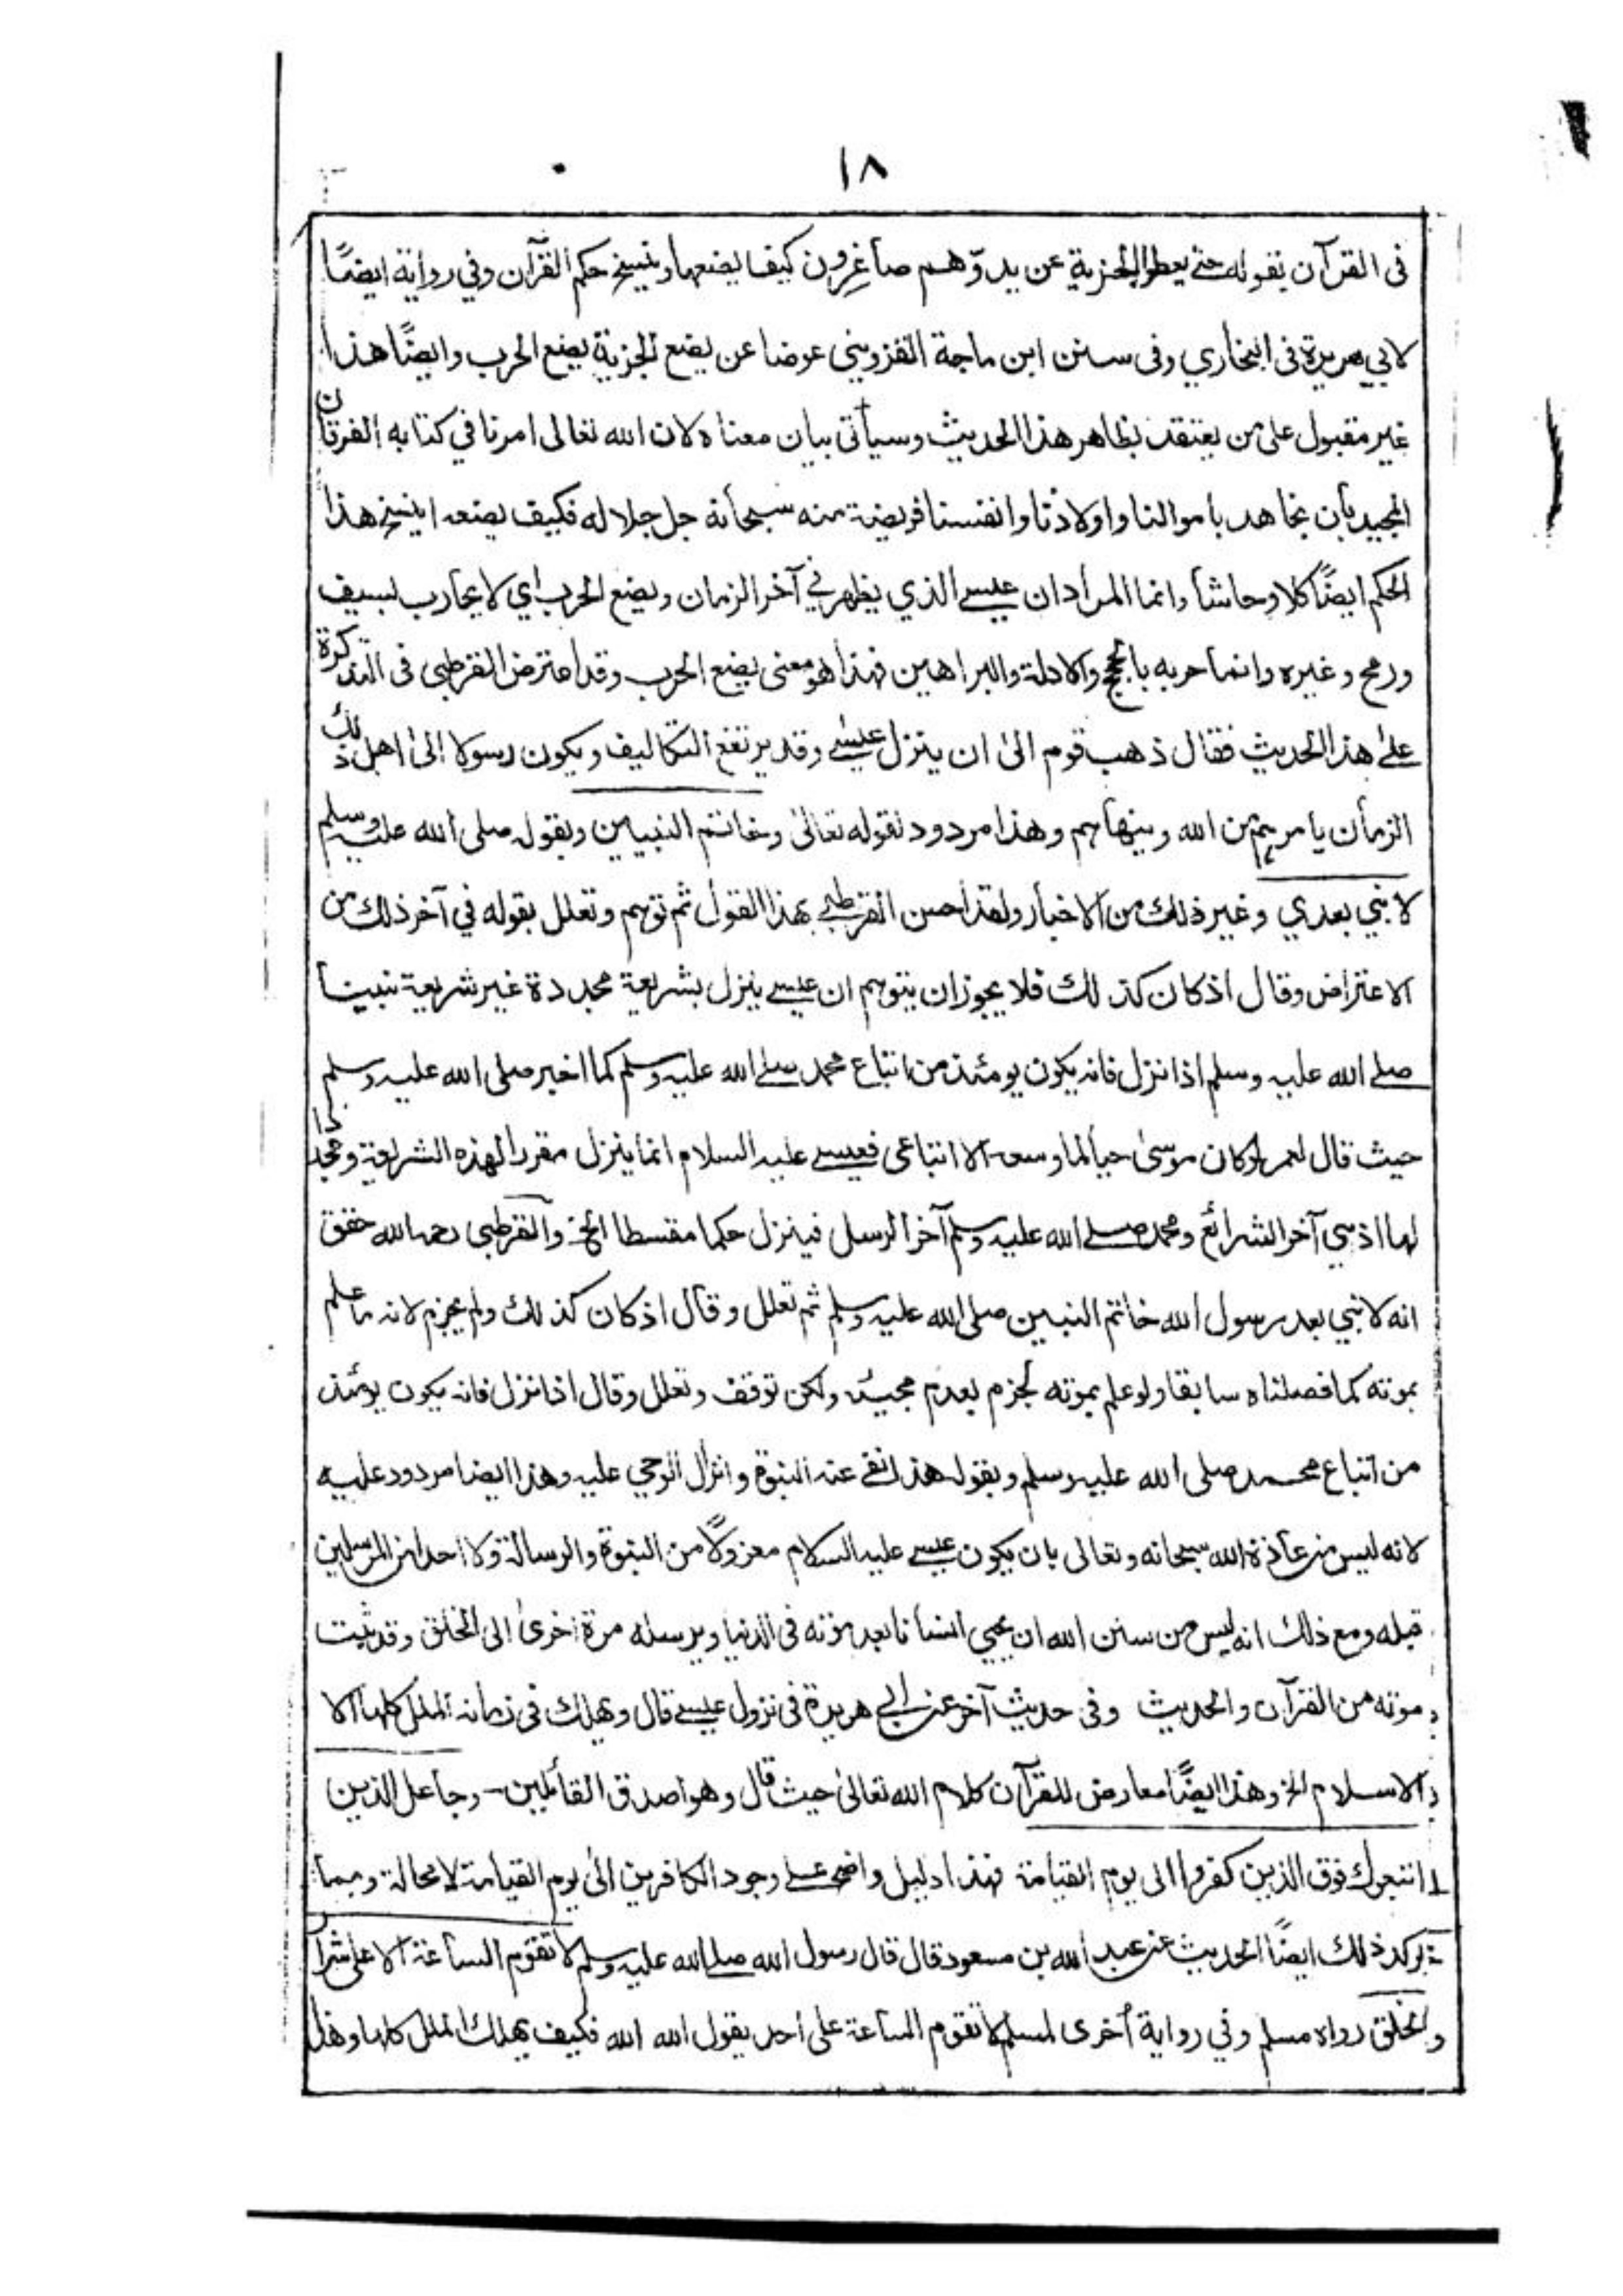 ١٨
فى القرآن بقوله حتى يعطوا الجزية عن يد وّهم صاغِرون كيف يضعها وينسخ حكم القرآن وفي رواية ايضًا
لابي هريرة فى البخاري وفى سنن ابن ماجة القزويني عوضا عن يضع الجزية يضع الحرب وايضًا هذا
غير مقبول على من يعتقد بظاهر هذا الحديث وسيأتى بيان معناه لان الله تعالى امرنا في كتابه الفرقان
المجيد بأن نجاهد باموالنا واولادنا وانفسنا فريضة منه سبحانه جل جلاله فكيف يضعه اينسخ هذا
الحكم ايضًا كلا وحاشا وانما المراد ان عيسى الذي يظهر في آخر الزمان ويضع الحرب اي لا يحارب بسيف
ورمح وغيره وانما حربه بالحجج والادلة والبراهين فهذا هو معنى يضع الحرب وقد اعترض القرطبى فى التذكرة
على هذا الحديث فقال ذهب قوم الىٰ ان ينزل عيسٰى وقد يرتفع التكاليف ويكون رسولا الىٰ اهل ذلك
الزمان يامرهم من الله وينهاهم وهذا مردود لقوله تعالىٰ وخاتم النبيين وبقوله صلى الله عليه وسلم
لا نبي بعدي وغير ذلك من الاخبار ولقد احسن القرطبي بهذا القول ثم توهم وتعلل بقوله في آخر ذلك من
الاعتراض وقال اذ كان كذلك فلا يجوز ان يتوهم ان عيسى ينزل بشريعة مجددة غير شريعة نبينا
صلى الله عليه وسلم اذا نزل فانه يكون يومئذ من اتباع محمد صلى الله عليه وسلم كما اخبر صلى الله عليه وسلم
حيث قال لعمر لو كان موسىٰ حيا لما وسعه الا اتباعى فعيسى عليه السلام انما ينزل مقررا لهذه الشريعة ومجددا
لها اذ هي آخر الشرائع ومحمد صلى الله عليه وسلم آخر الرسل فينزل حكما مقسطا الخ والقرطبى رحمه الله حقق
انه لا نبي بعد رسول الله خاتم النبين صلى الله عليه وسلم ثم تعلل وقال اذ كان كذلك ولم يجزم لانه ما علم
بموته كما فصلناه سابقا ولو علم بموته لجزم بعدم مجيئه ولكن توقف وتعلل وقال اذا نزل فانه يكون يومئذ
من اتباع محمد صلى الله عليه وسلم وبقوله هذا نفى عنه النبوة وانزال الوحي عليه وهذا ايضا مردود عليه
لانه ليس من عادة الله سبحانه وتعالى بان يكون عيسى عليه السلام معزولًا من النبوة والرسالة ولا احد من المرسلين
قبله ومع ذلك انه ليس من سنن الله ان يحيي انسانا بعد موته فى الدنيا ويرسله مرة اخرىٰ الى الخلق وقد ثبت
موته من القرآن والحديث وفى حديث آخر عن ابي هريرة فى نزول عيسى قال ويهلك فى زمانه الملل كلها الا
الاسلام الخ وهذا ايضًا معارض للقرآن كلام الله تعالىٰ حيث قال وهو اصدق القائلين - وجاعل الذين
اتبعوك فوق الذين كفروا الى يوم القيامة فهذا دليل واضح على وجود الكافرين الىٰ يوم القيامة لا محالة ومما
يؤكد ذلك ايضًا الحديث عن عبد الله بن مسعود قال قال رسول الله صلى الله عليه وسلم لا تقوم الساعة الا على شرار
الخلق رواه مسلم وفي رواية أخرى لمسلم لا تقوم الساعة على احد يقول الله الله فكيف يهلك الملل كلها وهذا